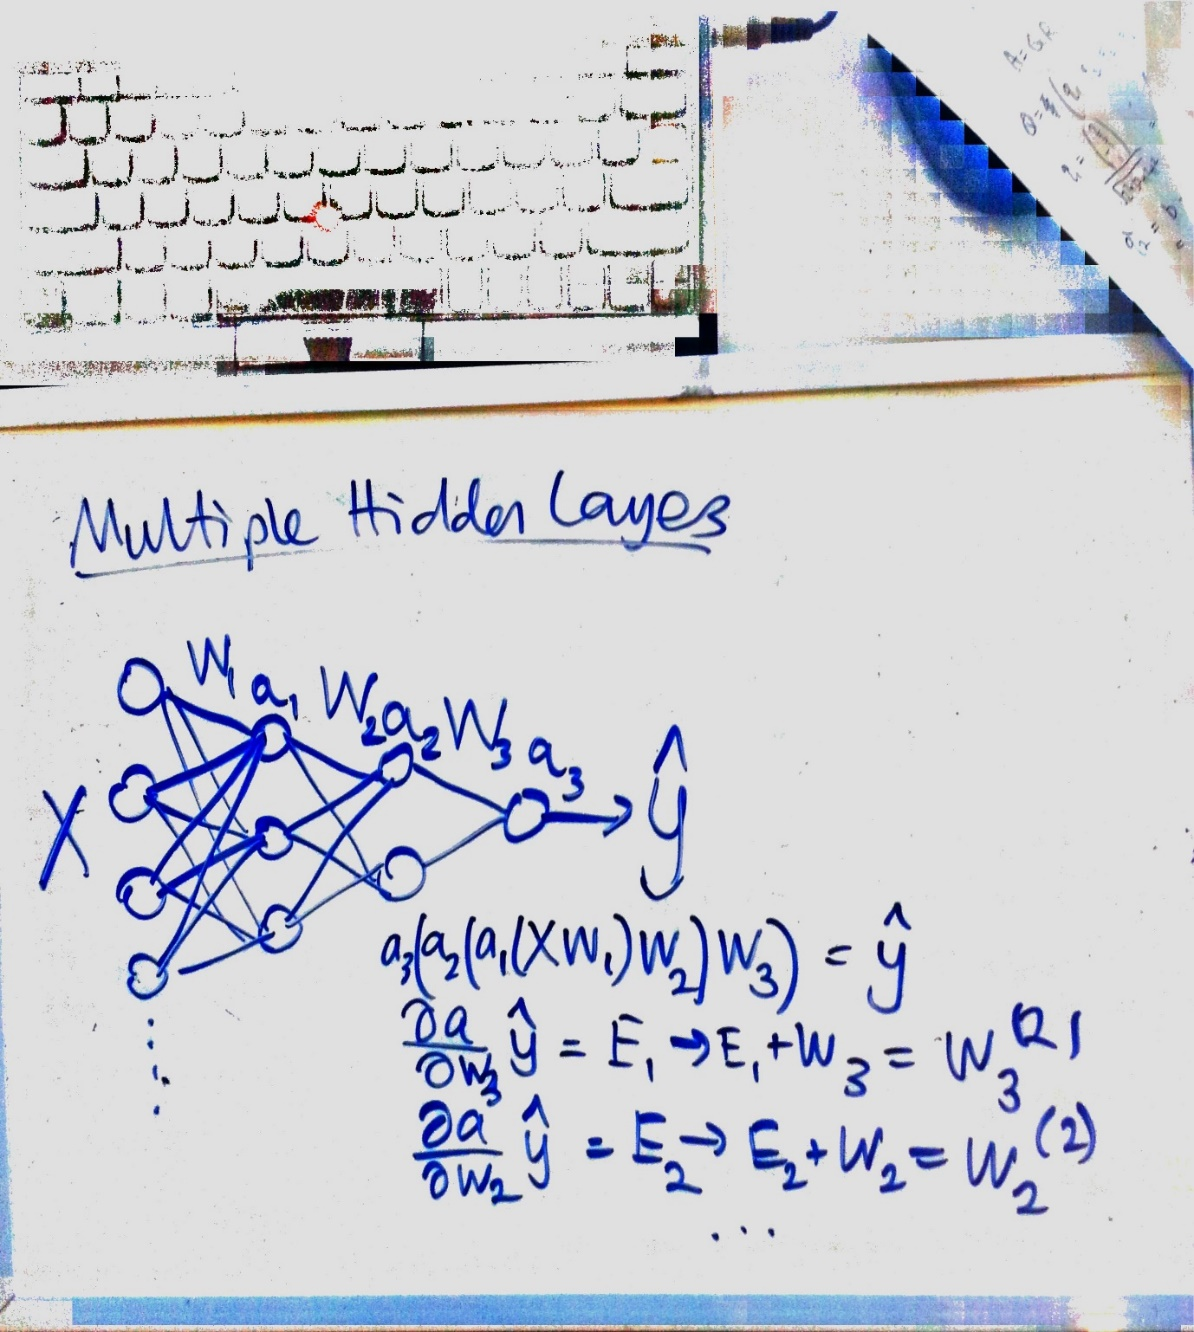 A=GR
Multiple Hidden Layes
W₁ a₁ W₂ a₂ W₃ a₃
X
ŷ
a₃(a₂(a₁(XW₁)W₂)W₃) = ŷ
∂a/∂W₃ ŷ = E₁ → E₁ + W₃ = W₃⁽²⁾
∂a/∂W₂ ŷ = E₂ → E₂ + W₂ = W₂⁽²⁾
...